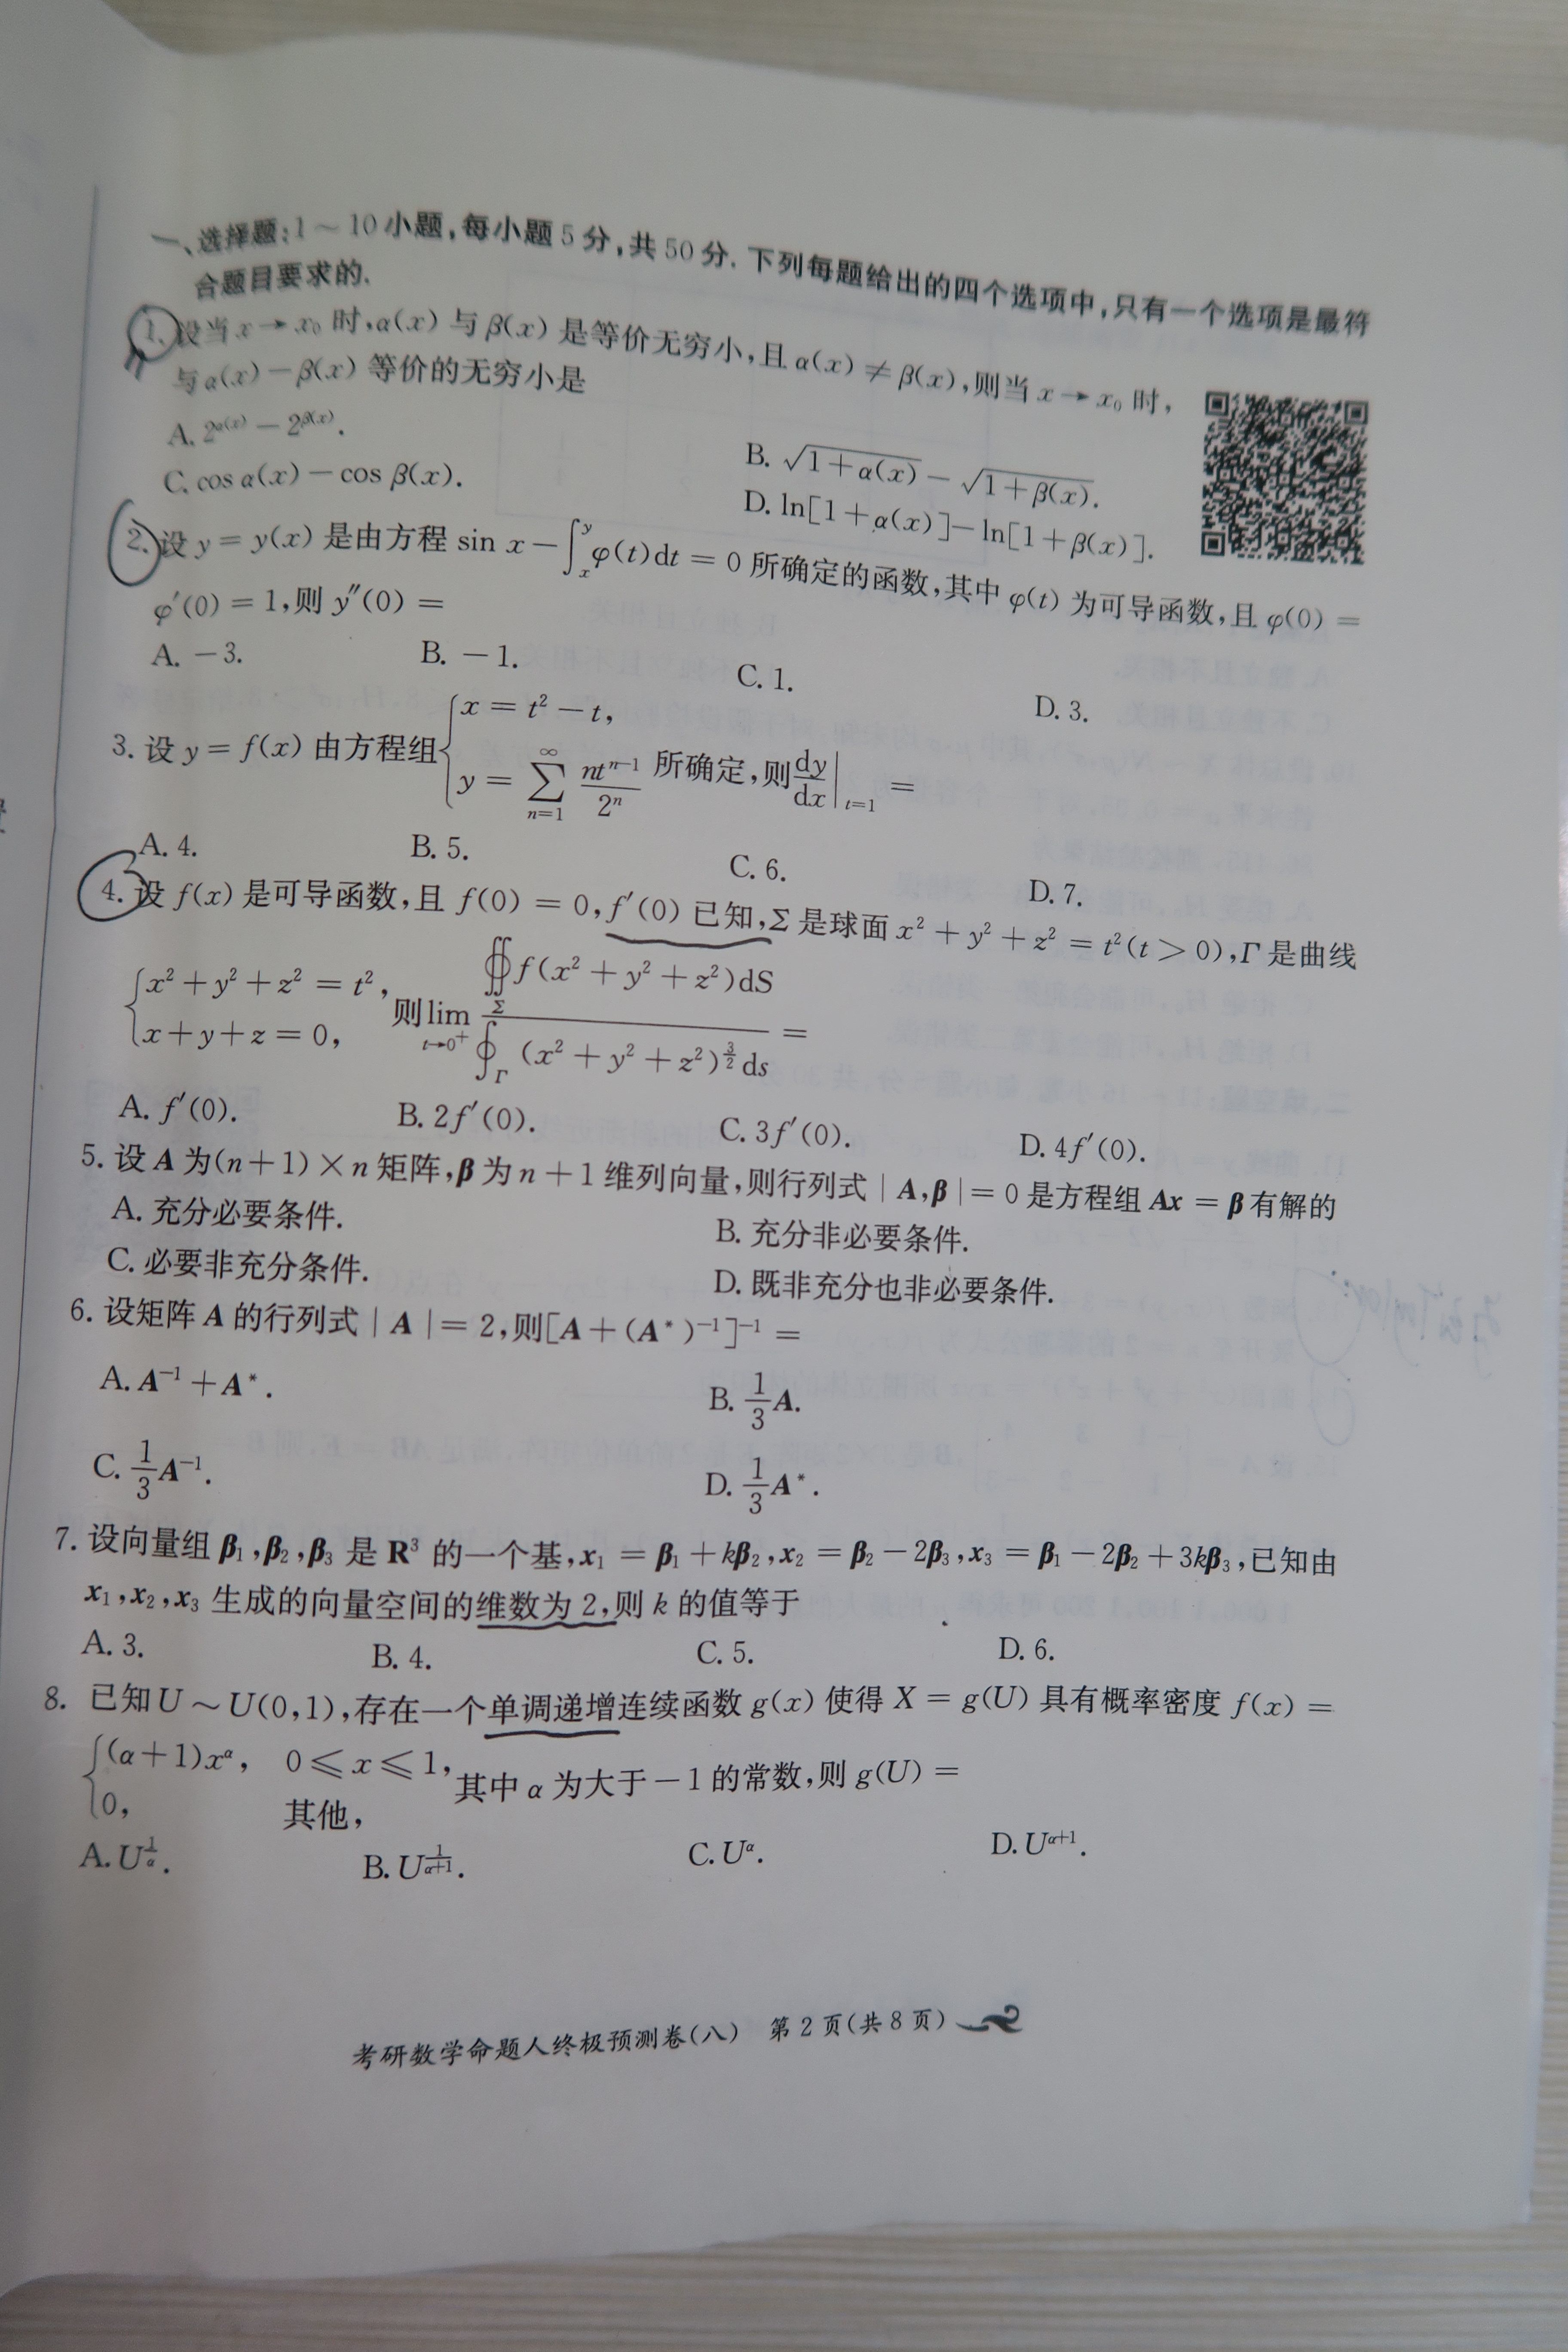 一、选择题:1～10小题,每小题5分,共50分.下列每题给出的四个选项中,只有一个选项是最符
合题目要求的.
1. 设当 x→x₀ 时,α(x) 与 β(x) 是等价无穷小,且 α(x) ≠ β(x),则当 x→x₀ 时,
与 α(x) − β(x) 等价的无穷小是
A. 2^{α(x)} − 2^{β(x)}.
B. √(1+α(x)) − √(1+β(x)).
C. cos α(x) − cos β(x).
D. ln[1+α(x)] − ln[1+β(x)].
2. 设 y = y(x) 是由方程 sin x − ∫_x^y φ(t)dt = 0 所确定的函数,其中 φ(t) 为可导函数,且 φ(0) =
φ′(0) = 1,则 y″(0) =
A. −3. B. −1. C. 1. D. 3.
3. 设 y = f(x) 由方程组 { x = t² − t, y = ∑_{n=1}^{∞} nt^{n−1}/2ⁿ 所确定,则 dy/dx|_{t=1} =
A. 4. B. 5. C. 6. D. 7.
4. 设 f(x) 是可导函数,且 f(0) = 0, f′(0) 已知,Σ 是球面 x² + y² + z² = t²(t > 0),Γ 是曲线
{ x² + y² + z² = t², x + y + z = 0, 则 lim_{t→0⁺} ∯_Σ f(x² + y² + z²)dS / ∮_Γ (x² + y² + z²)^{3/2} ds =
A. f′(0). B. 2f′(0). C. 3f′(0). D. 4f′(0).
5. 设 A 为(n+1)×n 矩阵,β 为 n+1 维列向量,则行列式 | A,β | = 0 是方程组 Ax = β 有解的
A. 充分必要条件. B. 充分非必要条件.
C. 必要非充分条件. D. 既非充分也非必要条件.
6. 设矩阵 A 的行列式 | A | = 2,则[A + (A*)⁻¹]⁻¹ =
A. A⁻¹ + A*. B. 1/3 A.
C. 1/3 A⁻¹. D. 1/3 A*.
7. 设向量组 β₁,β₂,β₃ 是 R³ 的一个基,x₁ = β₁ + kβ₂,x₂ = β₂ − 2β₃,x₃ = β₁ − 2β₂ + 3kβ₃,已知由
x₁,x₂,x₃ 生成的向量空间的维数为 2,则 k 的值等于
A. 3. B. 4. C. 5. D. 6.
8. 已知 U ～ U(0,1),存在一个单调递增连续函数 g(x) 使得 X = g(U) 具有概率密度 f(x) =
{ (α+1)x^α, 0 ≤ x ≤ 1, 0, 其他, 其中 α 为大于 −1 的常数,则 g(U) =
A. U^{1/α}. B. U^{1/(α+1)}. C. U^α. D. U^{α+1}.
考研数学命题人终极预测卷(八) 第2页(共8页)